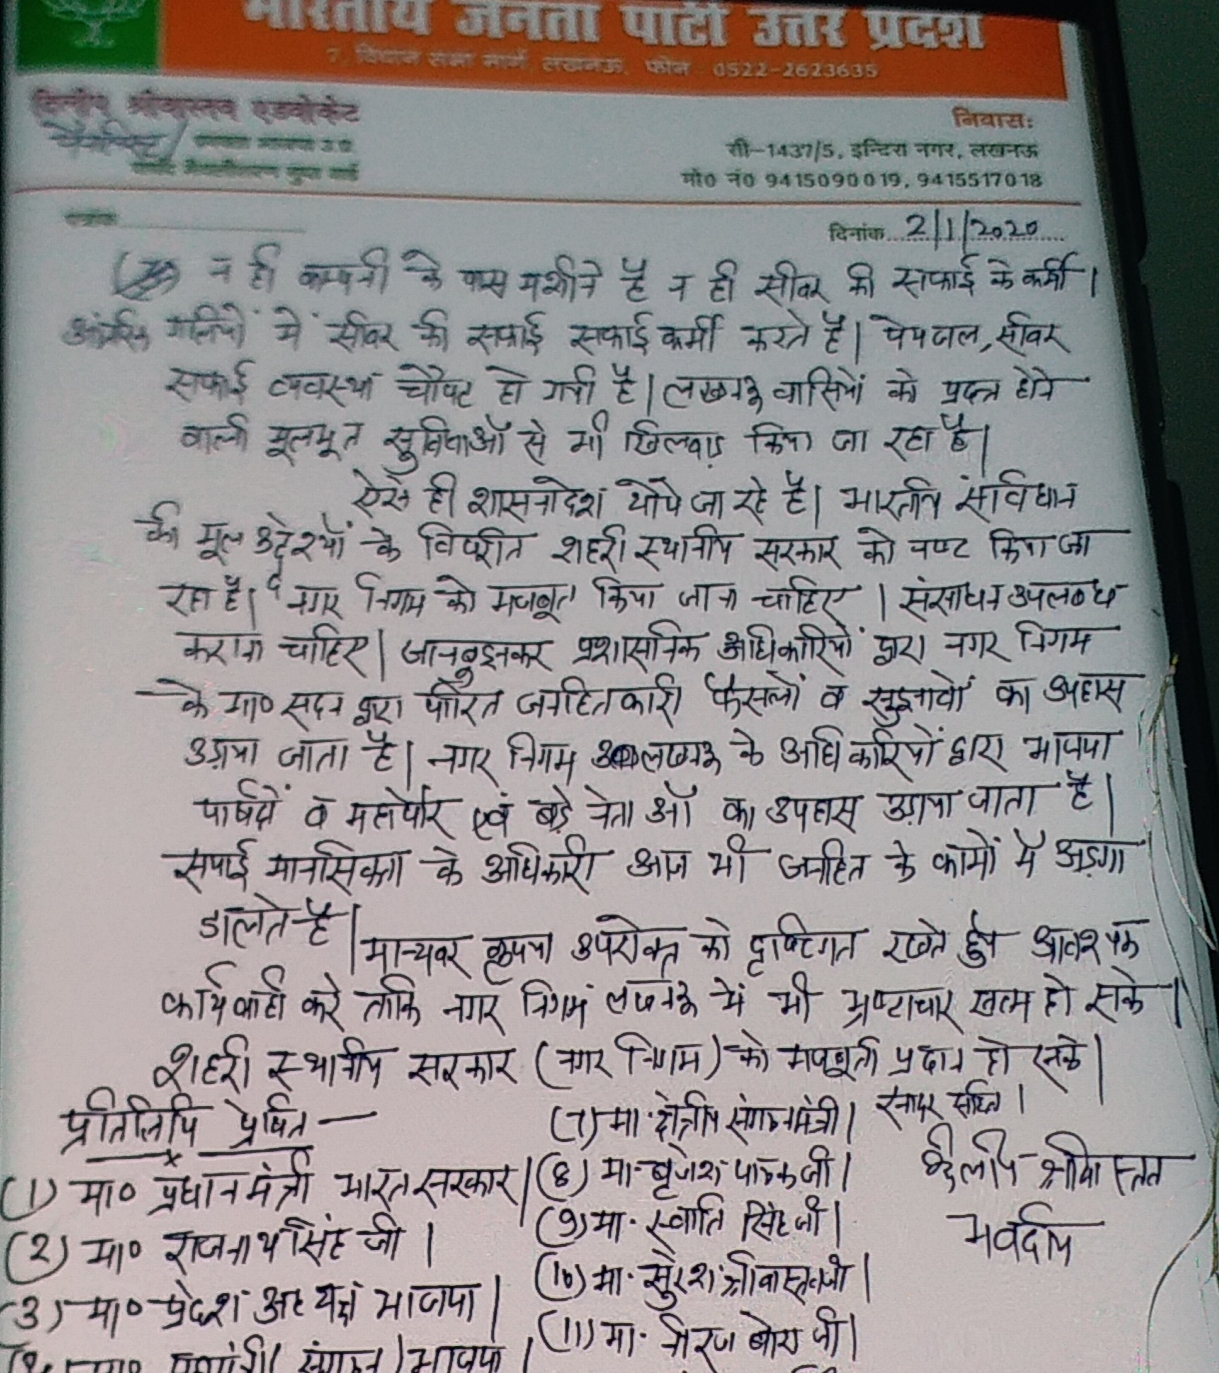 भारतीय जनता पार्टी उत्तर प्रदेश
7, विधान सभा मार्ग, लखनऊ, फोन 0522-2623635
दिलीप श्रीवास्तव एडवोकेट
निवास:
सी-1437/5, इन्दिरा नगर, लखनऊ
मो0 नं0 9415090019, 9415517018
दिनांक 2/1/2020
न ही कम्पनी के पास मशीने है न ही सीवर की सफाई के कर्मी।
गलियों में सीवर की सफाई सफाई कर्मी करते है। पेयजल, सीवर
सफाई व्यवस्था चौपट हो गयी है। लखनऊ वासियों को प्रदत्त होने
वाली मूलभूत सुविधाओं से भी खिलवाड़ किया जा रहा है।
ऐसे ही शासनादेश थोपे जा रहे है। भारतीय संविधान
की मूल उद्देश्यों के विपरीत शहरी स्थानीय सरकार को नष्ट किया जा
रहा है। नगर निगम को मजबूत किया जाना चाहिए। संसाधन उपलब्ध
कराना चाहिए। जानबुझकर प्रशासनिक अधिकारियों द्वारा नगर निगम
के मा० सदन द्वारा पारित जनहितकारी फैसलों व सुझावों का उपहास
उड़ाया जाता है। नगर निगम लखनऊ के अधिकारियों द्वारा भाजपा
पार्षदों व महापौर एवं बड़े नेताओं का उपहास उड़ाया जाता है।
सपाई मानसिकता के अधिकारी आज भी जनहित के कामों में अड़ंगा
डालते है।
मान्यवर कृपया उपरोक्त को दृष्टिगत रखते हुए आवश्यक
कार्यवाही करे ताकि नगर निगम लखनऊ में भी भ्रष्टाचार खत्म हो सके।
शहरी स्थानीय सरकार (नगर निगम) को मजबूती प्रदान हो सके।
सादर सहित।
दिलीप श्रीवास्तव
भवदीय
प्रतिलिपि प्रेषित—
(1) मा० प्रधानमंत्री भारत सरकार।
(2) मा० राजनाथ सिंह जी।
(3) मा० प्रदेश अध्यक्ष भाजपा।
मा० संगठन) भाजपा।
(7) मा. क्षेत्रीय संगठन मंत्री।
(8) मा. बृजेश पाठक जी।
(9) मा. स्वाति सिंह जी।
(10) मा. सुरेश श्रीवास्तव जी।
(11) मा. नीरज बोरा जी।